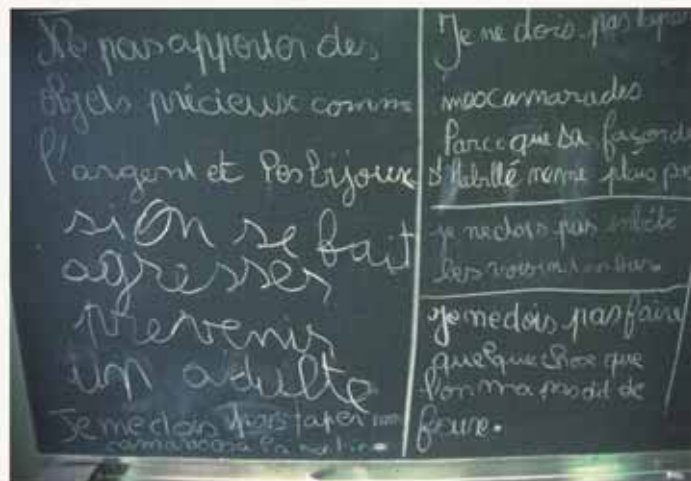 Ne pas apporter des
objets précieux comme
l'argent et les bijoux
si On se fait
agresser
prevenir
un adulte
Je ne dois pas taper mon
camarade a la
Je ne dois pas
mes camarades
Parce que sa façon
d'Habillé me plais pas
je ne dois pas
les voisins
je ne dois pas faire
quelque chose que
l'on ma pas dit de
faire.